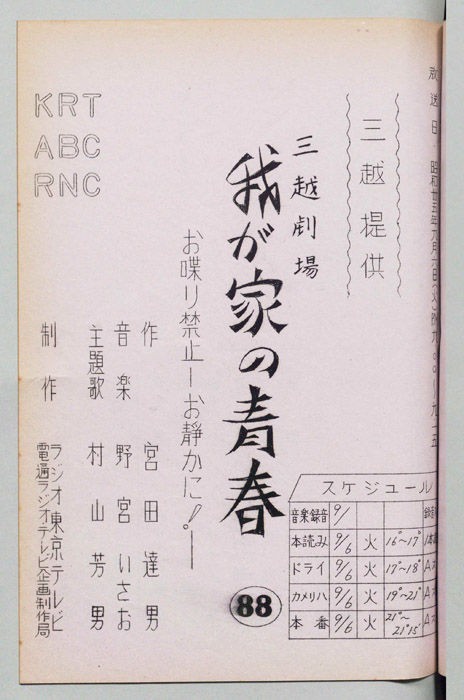 三越提供
三越劇場
我が家の青春
お喋り禁止ーお静かに!ー
88
作 宮田達男
音楽 野宮いさお
主題歌 村山芳男
制作 ラジオ東京テレビ
電通ラジオテレビ企画制作局
KRT
ABC
RNC
スケジュール
音楽録音 9/
本読み 9/6 火 16~17°
ドライ 9/6 火 17~18°
カメリハ 9/6 火 19°~21°
本番 9/6 火 21°~21°15'